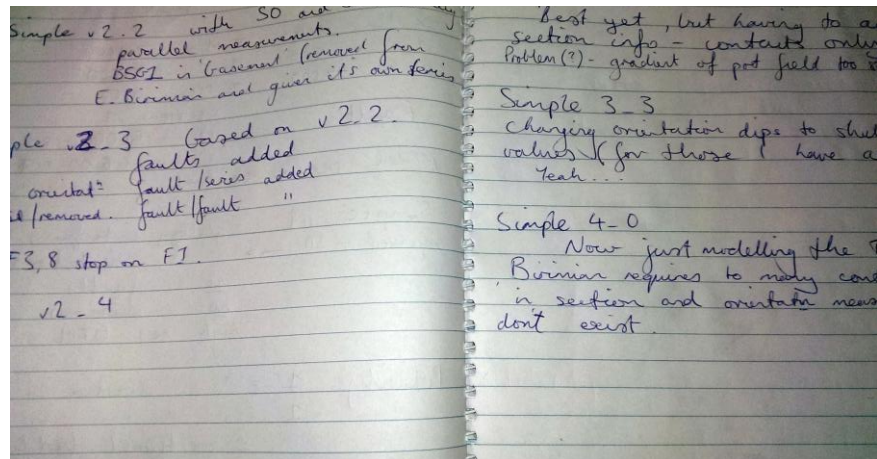 Simple v2.2 with SO and
parallel measurements.
BSG1 in basement (removed from
E. Birimian and given it's own series
ple v2_3 based on v2_2.
faults added
orientat= fault/series added
/removed. fault/fault "
F3,8 stop on F1.
v2_4
Best yet, but having to a
section info - contacts only
Problem(?) - gradient of pot field too
Simple 3_3
Changing orientation dips to
values (for those I have a
Yeah...
Simple 4_0
Now just modelling the
Birimian requires to many cons
in section and orientatn meas
don't exist.